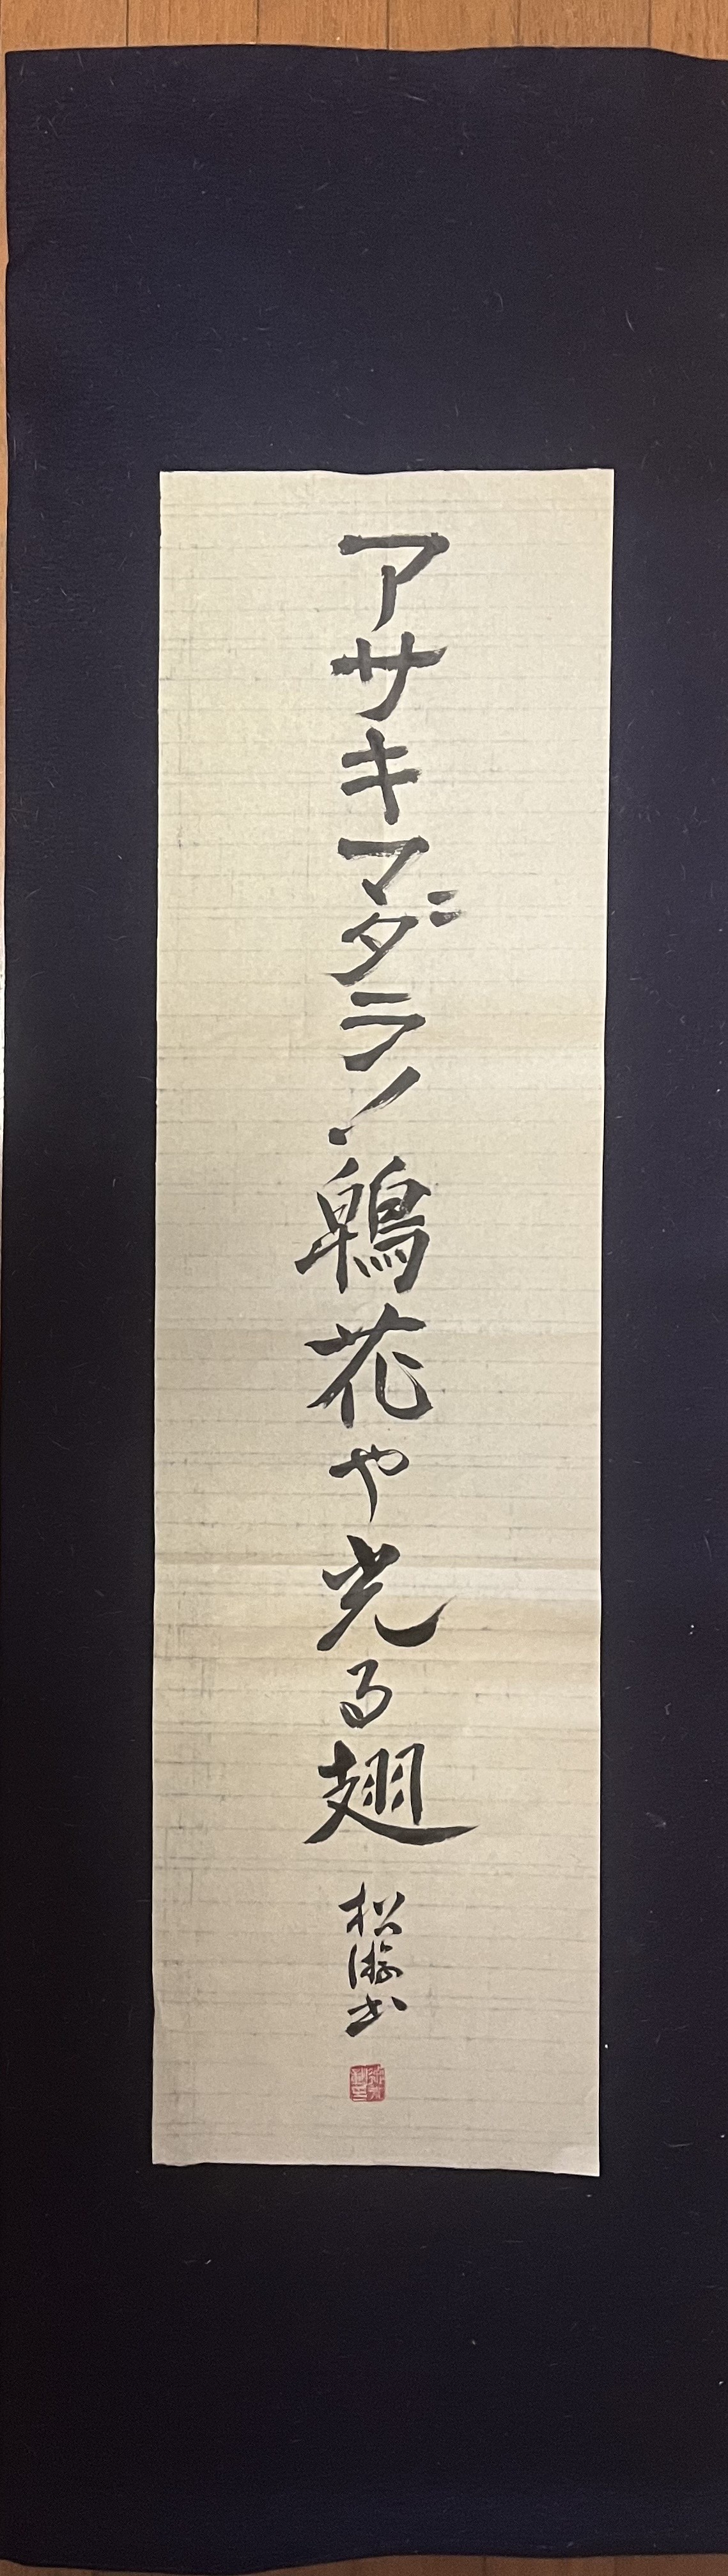 アサキマダラ！鵯花や光る翅
松 書